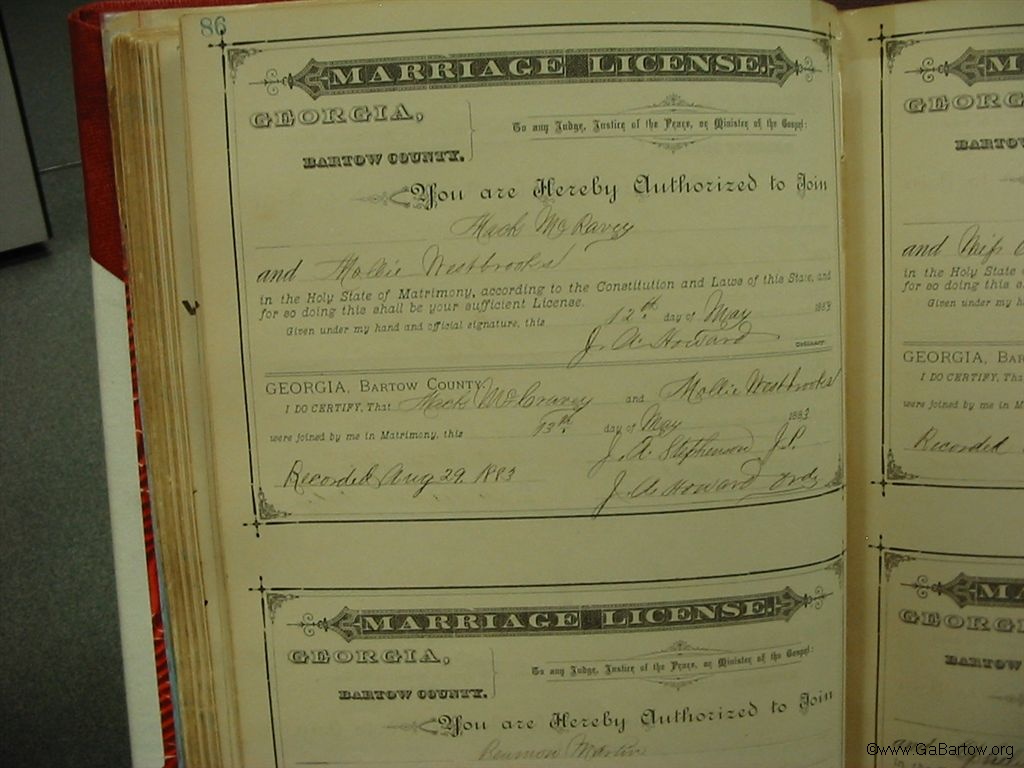 86
MARRIAGE LICENSE.
GEORGIA,
BARTOW COUNTY.
To any Judge, Justice of the Peace, or Minister of the Gospel:
You are Hereby Authorized to Join
Mack McRavey
and Mollie Westbrooks
in the Holy State of Matrimony, according to the Constitution and Laws of this State, and
for so doing this shall be your sufficient License.
Given under my hand and official signature, this 12th day of May 1883
J. A. Howard Ordinary.
GEORGIA, BARTOW COUNTY.
I DO CERTIFY, That Mack McCravey and Mollie Westbrooks
were joined by me in Matrimony, this 13th day of May 1883
J. A. Stephenson J.P.
Recorded Aug 29. 1883
J. A. Howard Ordy
MARRIAGE LICENSE.
GEORGIA,
BARTOW COUNTY.
To any Judge, Justice of the Peace, or Minister of the Gospel:
You are Hereby Authorized to Join
Martin
M
GEORG
BARTOW
and Miss
in the Holy State
for so doing this
Given under my h
GEORGIA, BAR
I DO CERTIFY, Tha
were joined by me in
Recorded
MA
GEORGI
BARTOW
and
©www.GaBartow.org